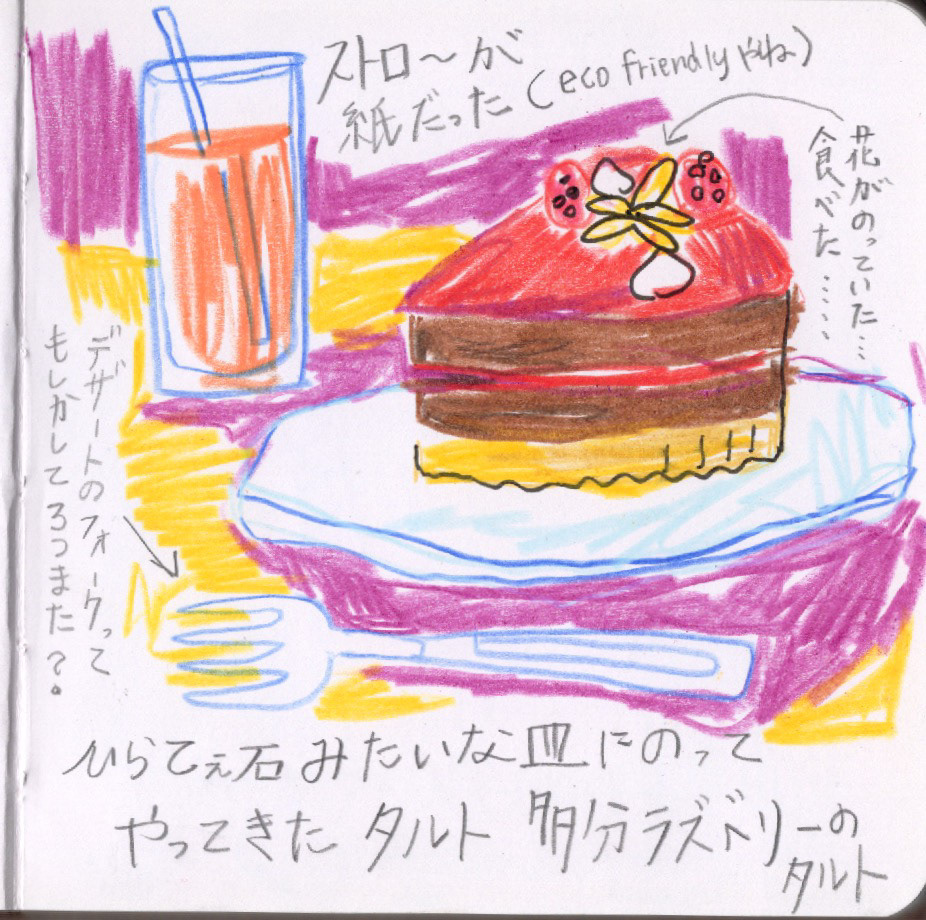 ストロ〜が
紙だった(eco friendlyやね)
花がのっていた…
食べた……
デザートのフォークって
もしかしてろつまた?
ひらてぇ石みたいな皿にのって
やってきたタルト 多分ラズベリーの
タルト